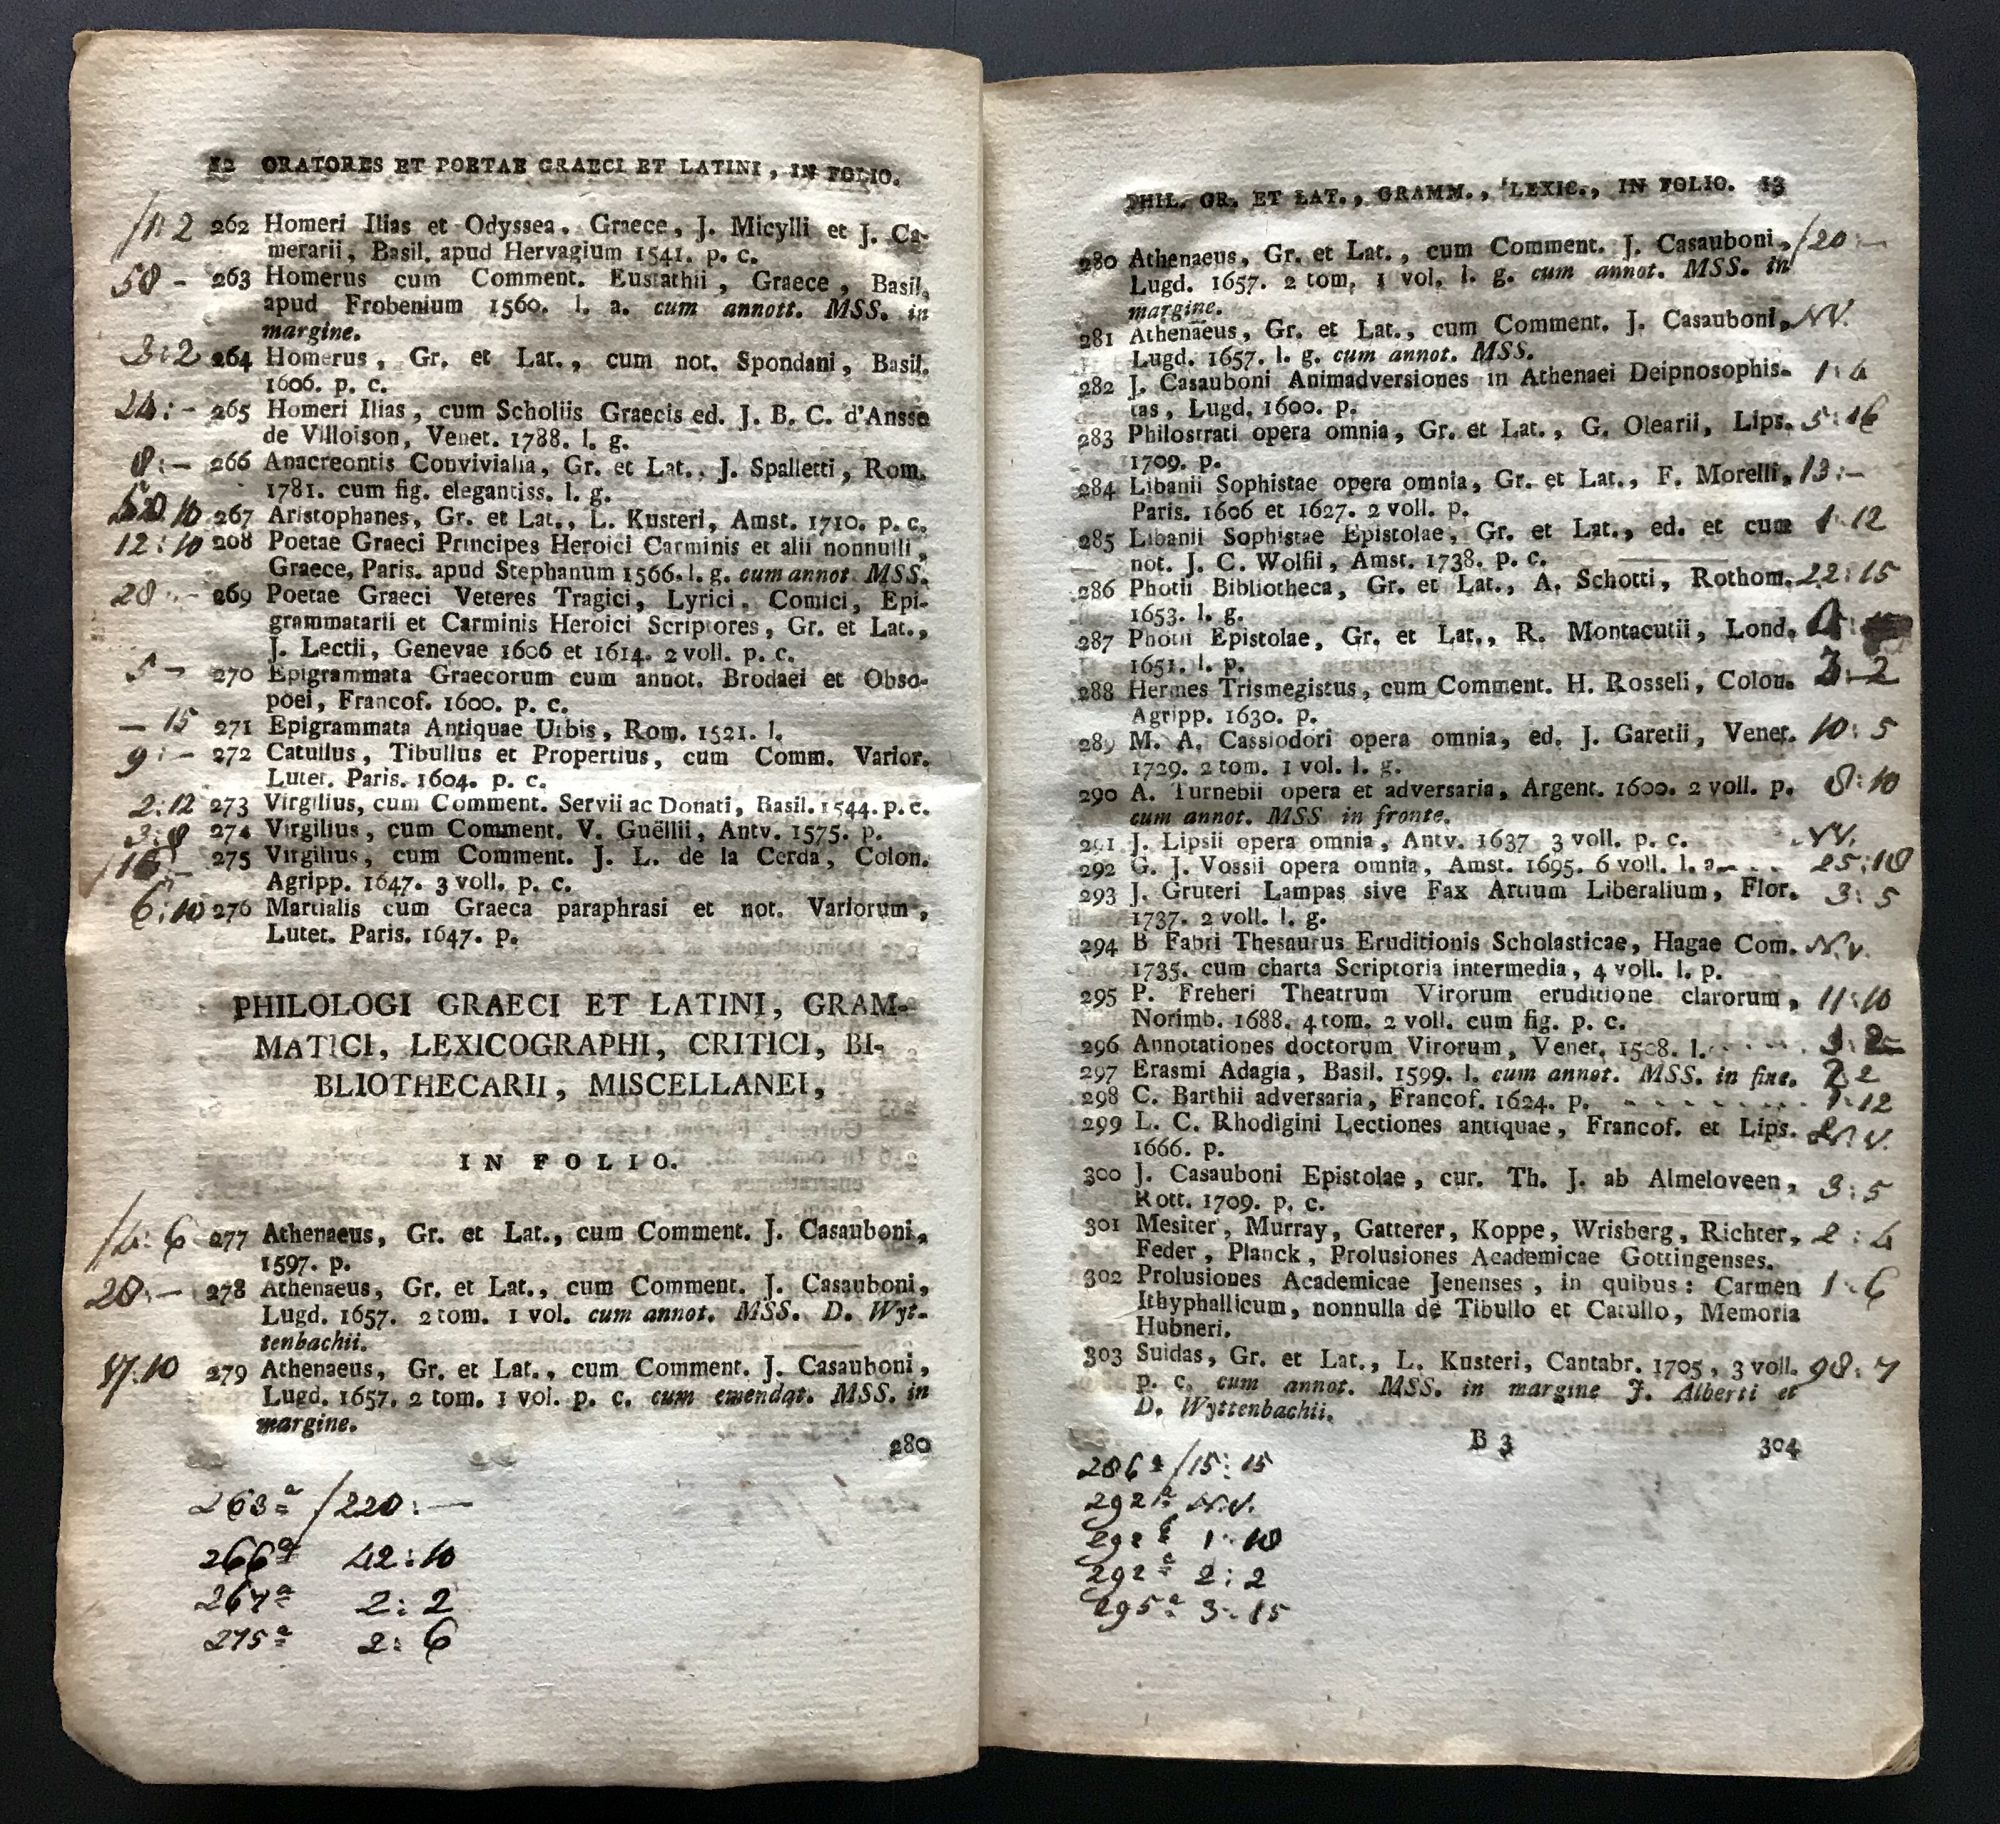 12 ORATORES ET POETAE GRAECI ET LATINI, IN FOLIO.
262 Homeri Ilias et Odyssea. Graece, J. Micylli et J. Ca-
merarii, Basil. apud Hervagium 1541. p. c.
58 - 263 Homerus cum Comment. Eustathii, Graece, Basil.
apud Frobenium 1560. l. a. cum annott. MSS. in
margine.
3:2 264 Homerus, Gr. et Lat., cum not. Spondani, Basil.
1606. p. c.
24:- 265 Homeri Ilias, cum Scholiis Graecis ed. J. B. C. d'Ansse
de Villoison, Venet. 1788. l. g.
8:- 266 Anacreontis Convivialia, Gr. et Lat., J. Spalletti, Rom.
1781. cum fig. elegantiss. l. g.
267 Aristophanes, Gr. et Lat., L. Kusteri, Amst. 1710. p. c.
12:10 268 Poetae Graeci Principes Heroici Carminis et alii nonnulli,
Graece, Paris. apud Stephanum 1566. l. g. cum annot. MSS.
28:- 269 Poetae Graeci Veteres Tragici, Lyrici, Comici, Epi-
grammatarii et Carminis Heroici Scriptores, Gr. et Lat.,
J. Lectii, Genevae 1606 et 1614. 2 voll. p. c.
5 - 270 Epigrammata Graecorum cum annot. Brodaei et Obso-
poei, Francof. 1600. p. c.
- 15 271 Epigrammata Antiquae Urbis, Rom. 1521. l.
9:- 272 Catullus, Tibullus et Propertius, cum Comm. Varior.
Lutet. Paris. 1604. p. c.
2:12 273 Virgilius, cum Comment. Servii ac Donati, Basil. 1544. p. c.
3:8 274 Virgilius, cum Comment. V. Guëllii, Antv. 1575. p.
275 Virgilius, cum Comment. J. L. de la Cerda, Colon.
Agripp. 1647. 3 voll. p. c.
6:10 276 Martialis cum Graeca paraphrasi et not. Variorum,
Lutet. Paris. 1647. p.
PHILOLOGI GRAECI ET LATINI, GRAM-
MATICI, LEXICOGRAPHI, CRITICI, BI-
BLIOTHECARII, MISCELLANEI,
IN FOLIO.
/4:6 277 Athenaeus, Gr. et Lat., cum Comment. J. Casauboni,
1597. p.
28:- 278 Athenaeus, Gr. et Lat., cum Comment. J. Casauboni,
Lugd. 1657. 2 tom. 1 vol. cum annot. MSS. D. Wyt-
tenbachii.
279 Athenaeus, Gr. et Lat., cum Comment. J. Casauboni,
Lugd. 1657. 2 tom. 1 vol. p. c. cum emendat. MSS. in
margine.
280
263a /220:-
266a 42:10
267a 2:2
275a 2:6
PHIL. GR. ET LAT., GRAMM., LEXIC., IN FOLIO. 13
280 Athenaeus, Gr. et Lat., cum Comment. J. Casauboni, /20:-
Lugd. 1657. 2 tom. 1 vol. l. g. cum annot. MSS. in
margine.
281 Athenaeus, Gr. et Lat., cum Comment. J. Casauboni, NV.
Lugd. 1657. l. g. cum annot. MSS.
282 J. Casauboni Animadversiones in Athenaei Deipnosophis- 1:4
tas, Lugd. 1600. p.
283 Philostrati opera omnia, Gr. et Lat., G. Olearii, Lips. 5:16
1709. p.
284 Libanii Sophistae opera omnia, Gr. et Lat., F. Morelli, 13:-
Paris. 1606 et 1627. 2 voll. p.
285 Libanii Sophistae Epistolae, Gr. et Lat., ed. et cum 1:12
not. J. C. Wolfii, Amst. 1738. p. c.
286 Photii Bibliotheca, Gr. et Lat., A. Schotti, Rothom. 22:15
1653. l. g.
287 Photii Epistolae, Gr. et Lat., R. Montacutii, Lond.
1651. l. p.
288 Hermes Trismegistus, cum Comment. H. Rosseli, Colon. 3:2
Agripp. 1630. p.
289 M. A. Cassiodori opera omnia, ed. J. Garetii, Venet. 10:5
1729. 2 tom. 1 vol. l. g.
290 A. Turnebii opera et adversaria, Argent. 1600. 2 voll. p. 8:10
cum annot. MSS. in fronte.
291 J. Lipsii opera omnia, Antv. 1637 3 voll. p. c. NV.
292 G. J. Vossii opera omnia, Amst. 1695. 6 voll. l. a. 25:10
293 J. Gruteri Lampas sive Fax Artium Liberalium, Flor. 3:5
1737. 2 voll. l. g.
294 B Fabri Thesaurus Eruditionis Scholasticae, Hagae Com. N.v.
1735. cum charta Scriptoria intermedia, 4 voll. l. p.
295 P. Freheri Theatrum Virorum eruditione clarorum, 11:10
Norimb. 1688. 4 tom. 2 voll. cum fig. p. c.
296 Annotationes doctorum Virorum, Venet. 1508. l. 3:2
297 Erasmi Adagia, Basil. 1599. l. cum annot. MSS. in fine.
298 C. Barthii adversaria, Francof. 1624. p. 1:12
299 L. C. Rhodigini Lectiones antiquae, Francof. et Lips. N.v.
1666. p.
300 J. Casauboni Epistolae, cur. Th. J. ab Almeloveen, 3:5
Rott. 1709. p. c.
301 Mesiter, Murray, Gatterer, Koppe, Wrisberg, Richter, 2:4
Feder, Planck, Prolusiones Academicae Gottingenses.
302 Prolusiones Academicae Jenenses, in quibus: Carmen 1:6
Ithyphallicum, nonnulla de Tibullo et Catullo, Memoria
Hubneri.
303 Suidas, Gr. et Lat., L. Kusteri, Cantabr. 1705, 3 voll. 98:7
p. c. cum annot. MSS. in margine J. Alberti et
D. Wyttenbachii.
B 3 304
286a /15:15
N.V.
1:10
292a 2:2
295a 3:15